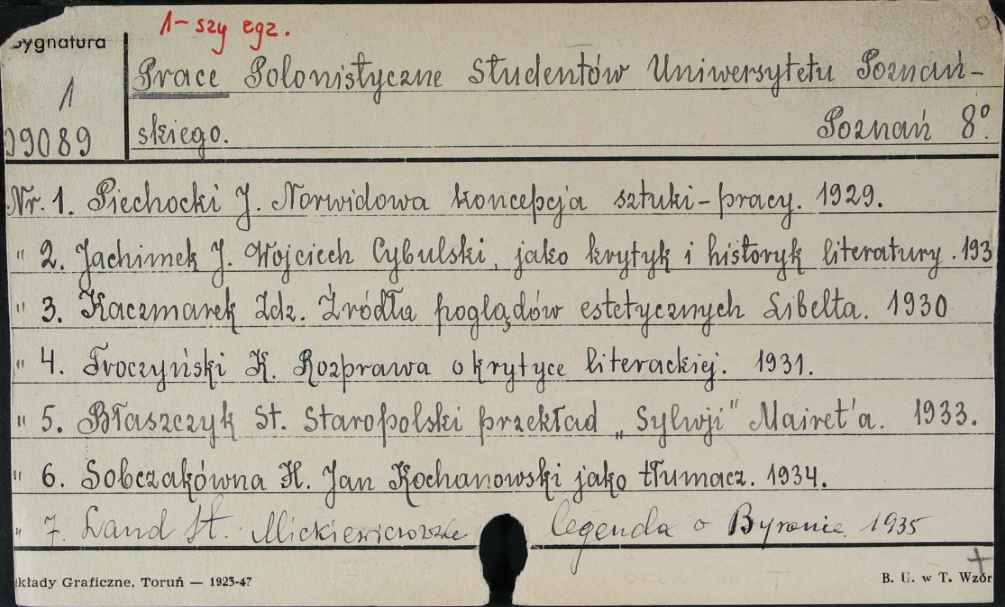 1-szy egz.
Sygnatura
Prace Polonistyczne Studentów Uniwersytetu Poznań-
1
skiego. Poznań 8°.
09089
Nr. 1. Piechocki J. Norwidowa koncepcja sztuki-pracy. 1929.
" 2. Jachimek J. Wojciech Cybulski, jako krytyk i historyk literatury. 193
" 3. Kaczmarek Zdz. Źródła poglądów estetycznych Libelta. 1930
" 4. Troczyński K. Rozprawa o krytyce literackiej. 1931.
" 5. Błaszczyk St. Staropolski przekład „Sylwji" Mairet'a. 1933.
" 6. Sobczakówna H. Jan Kochanowski jako tłumacz. 1934.
" 7. Land St. Mickiewiczowska legenda o Byronie. 1935
kłady Graficzne, Toruń — 1925-47 B. U. w T. Wzór